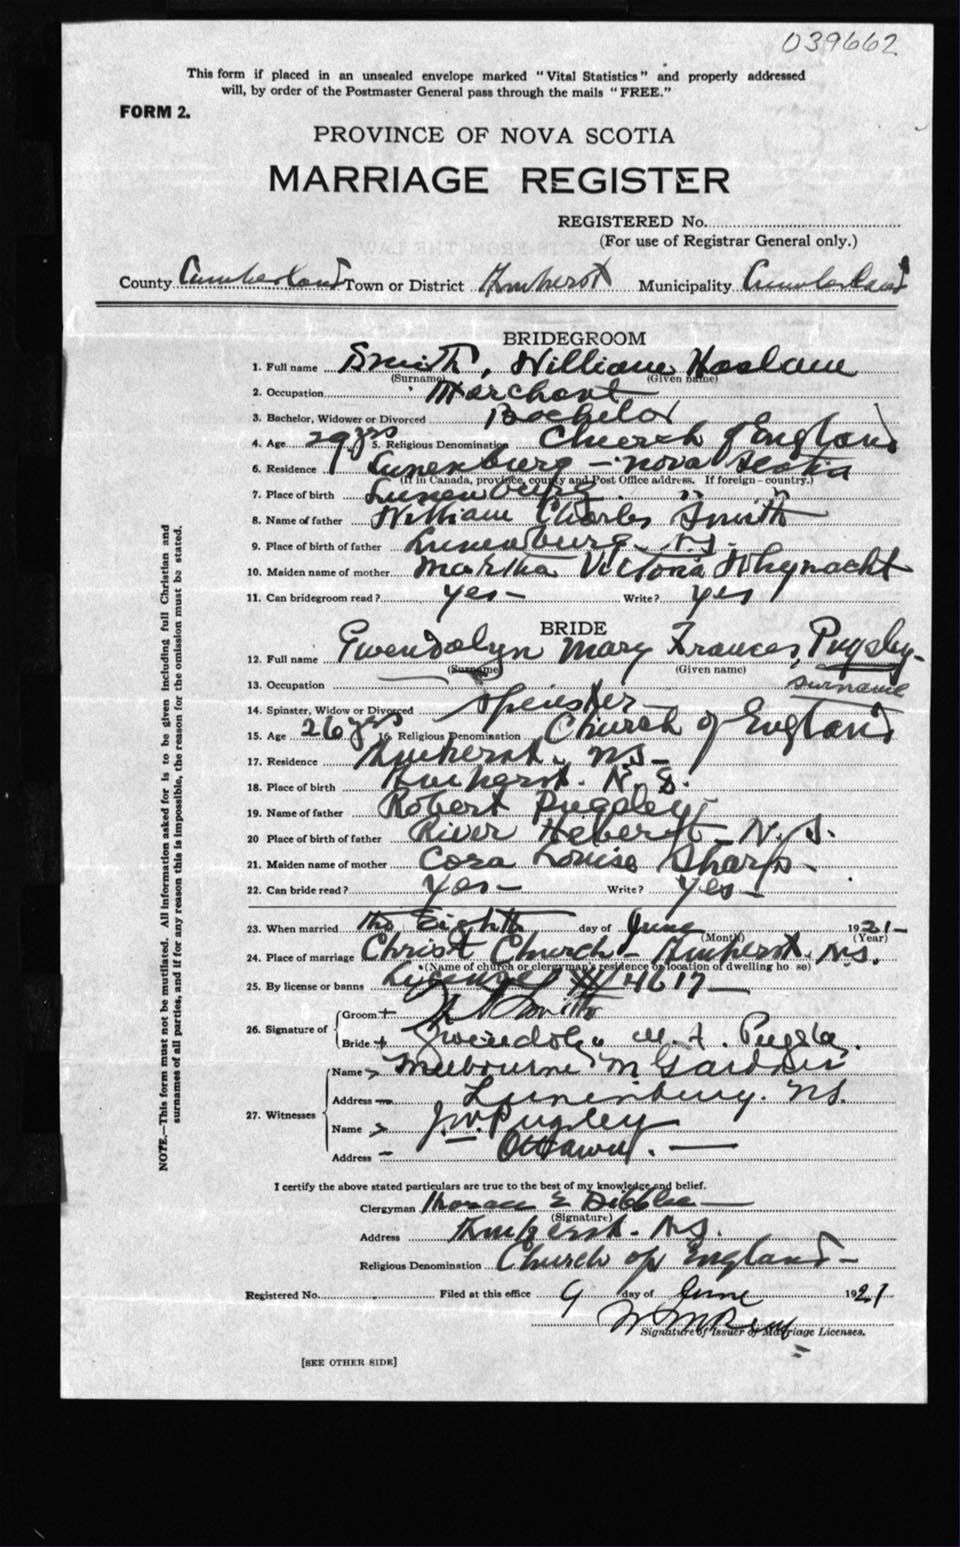 039662
This form if placed in an unsealed envelope marked "Vital Statistics" and properly addressed
will, by order of the Postmaster General pass through the mails "FREE."
FORM 2.
PROVINCE OF NOVA SCOTIA
MARRIAGE REGISTER
REGISTERED No.
(For use of Registrar General only.)
County Cumberland Town or District Amherst Municipality Cumberland
BRIDEGROOM
1. Full name Smith, William Haslam
(Surname) (Given name)
2. Occupation Merchant
3. Bachelor, Widower or Divorced Bachelor
4. Age 29 yrs 5. Religious Denomination Church of England
6. Residence Lunenburg - Nova Scotia
(If in Canada, province, county and Post Office address. If foreign - country.)
7. Place of birth Lunenburg " "
8. Name of father William Charles Smith
9. Place of birth of father Lunenburg N.S.
10. Maiden name of mother Martha Victoria Whynacht
11. Can bridegroom read? yes - Write? yes
BRIDE
12. Full name Gwendolyn Mary Frances, Pugsley-
(Surname) (Given name) surname
13. Occupation
14. Spinster, Widow or Divorced Spinster -
15. Age 26 yrs 16. Religious Denomination Church of England
17. Residence Amherst, N.S-
18. Place of birth Amherst. N.S.
19. Name of father Robert Pugsley
20 Place of birth of father River Hebert - N.S.
21. Maiden name of mother Cora Louise Sharp -
22. Can bride read? Yes - Write? Yes -
23. When married the Eighth day of June 1921-
(Month) (Year)
24. Place of marriage Christ Church - Amherst. N.S.
(Name of church or clergyman's residence or location of dwelling ho se)
25. By license or banns License # 4617 -
26. Signature of Groom + Smith
Bride + M. F. Pugsley
27. Witnesses Name Gardner
Address Lunenburg. N.S.
Name J.W. Pugsley
Address - Ottawa. -
I certify the above stated particulars are true to the best of my knowledge and belief.
Clergyman Horace E Dibblee -
(Signature)
Address Amherst. N.S.
Religious Denomination Church of England -
Registered No. Filed at this office 9 day of June 1921
Signature of Issuer of Marriage Licenses.
[SEE OTHER SIDE]
NOTE.—This form must not be mutilated. All information asked for is to be given including full Christian and
surnames of all parties, and if for any reason this is impossible, the reason for the omission must be stated.